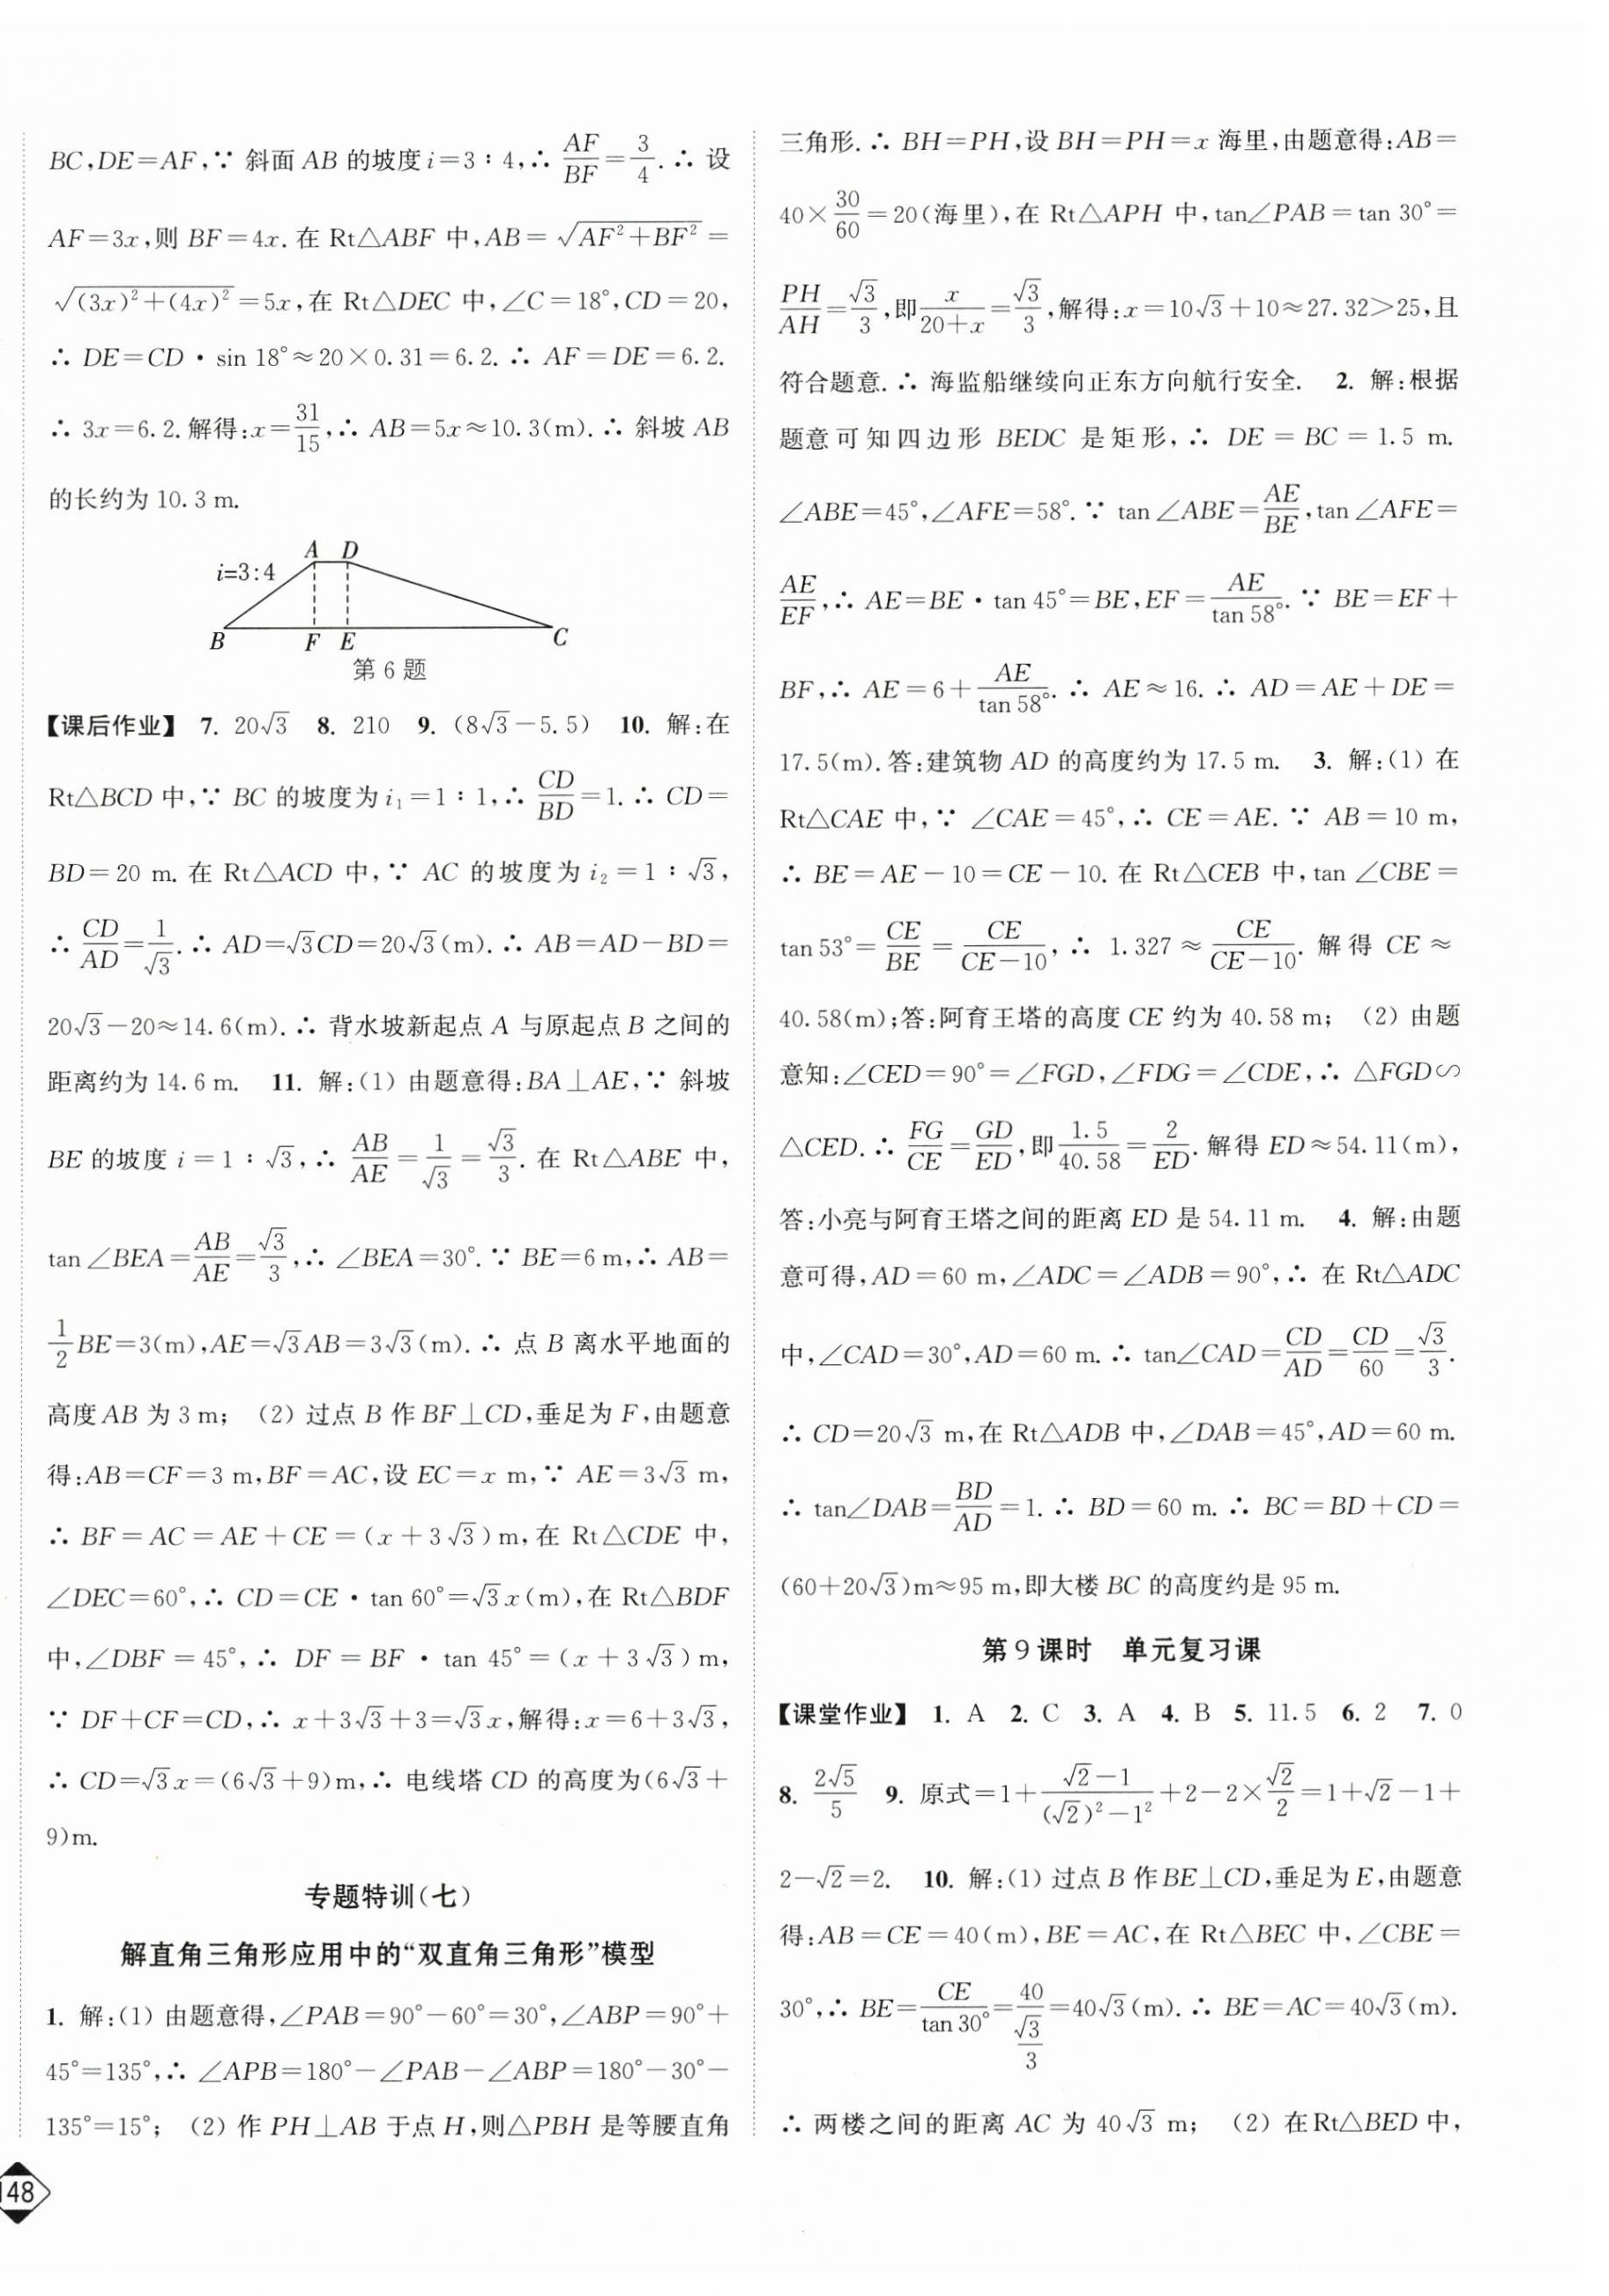 BC,DE=AF,∵ 斜面 AB 的坡度 i=3∶4,∴ AF/BF=3/4.∴ 设
AF=3x,则 BF=4x. 在 Rt△ABF 中,AB=√(AF²+BF²)=
√((3x)²+(4x)²)=5x,在 Rt△DEC 中,∠C=18°,CD=20,
∴ DE=CD·sin 18°≈20×0.31=6.2.∴ AF=DE=6.2.
∴ 3x=6.2.解得:x=31/15,∴ AB=5x≈10.3(m).∴ 斜坡 AB
的长约为 10.3 m.
A D
i=3:4
B F E C
第 6 题
【课后作业】 7. 20√3 8. 210 9. (8√3-5.5) 10. 解:在
Rt△BCD 中,∵ BC 的坡度为 i₁=1∶1,∴ CD/BD=1.∴ CD=
BD=20 m. 在 Rt△ACD 中,∵ AC 的坡度为 i₂=1∶√3,
∴ CD/AD=1/√3.∴ AD=√3CD=20√3(m).∴ AB=AD-BD=
20√3-20≈14.6(m).∴ 背水坡新起点 A 与原起点 B 之间的
距离约为 14.6 m. 11. 解:(1) 由题意得:BA⊥AE,∵ 斜坡
BE 的坡度 i=1∶√3,∴ AB/AE=1/√3=√3/3. 在 Rt△ABE 中,
tan∠BEA=AB/AE=√3/3,∴ ∠BEA=30°.∵ BE=6 m,∴ AB=
1/2BE=3(m),AE=√3AB=3√3(m).∴ 点 B 离水平地面的
高度 AB 为 3 m; (2) 过点 B 作 BF⊥CD,垂足为 F,由题意
得:AB=CF=3 m,BF=AC,设 EC=x m,∵ AE=3√3 m,
∴ BF=AC=AE+CE=(x+3√3)m,在 Rt△CDE 中,
∠DEC=60°,∴ CD=CE·tan 60°=√3x(m),在 Rt△BDF
中,∠DBF=45°,∴ DF=BF·tan 45°=(x+3√3)m,
∵ DF+CF=CD,∴ x+3√3+3=√3x,解得:x=6+3√3,
∴ CD=√3x=(6√3+9)m,∴ 电线塔 CD 的高度为(6√3+
9)m.
专题特训(七)
解直角三角形应用中的“双直角三角形”模型
1. 解:(1) 由题意得,∠PAB=90°-60°=30°,∠ABP=90°+
45°=135°,∴ ∠APB=180°-∠PAB-∠ABP=180°-30°-
135°=15°; (2) 作 PH⊥AB 于点 H,则△PBH 是等腰直角
148
三角形.∴ BH=PH,设 BH=PH=x 海里,由题意得:AB=
40×30/60=20(海里),在 Rt△APH 中,tan∠PAB=tan 30°=
PH/AH=√3/3,即x/(20+x)=√3/3,解得:x=10√3+10≈27.32>25,且
符合题意.∴ 海监船继续向正东方向航行安全. 2. 解:根据
题意可知四边形 BEDC 是矩形,∴ DE=BC=1.5 m.
∠ABE=45°,∠AFE=58°.∵ tan∠ABE=AE/BE,tan∠AFE=
AE/EF,∴ AE=BE·tan 45°=BE,EF=AE/tan 58°.∵ BE=EF+
BF,∴ AE=6+AE/tan 58°.∴ AE≈16.∴ AD=AE+DE=
17.5(m).答:建筑物 AD 的高度约为 17.5 m. 3. 解:(1) 在
Rt△CAE 中,∵ ∠CAE=45°,∴ CE=AE.∵ AB=10 m,
∴ BE=AE-10=CE-10. 在 Rt△CEB 中,tan∠CBE=
tan 53°=CE/BE=CE/(CE-10),∴ 1.327≈CE/(CE-10). 解得 CE≈
40.58(m);答:阿育王塔的高度 CE 约为 40.58 m; (2) 由题
意知:∠CED=90°=∠FGD,∠FDG=∠CDE,∴ △FGD∽
△CED.∴ FG/CE=GD/ED,即1.5/40.58=2/ED.解得 ED≈54.11(m),
答:小亮与阿育王塔之间的距离 ED 是 54.11 m. 4. 解:由题
意可得,AD=60 m,∠ADC=∠ADB=90°,∴ 在 Rt△ADC
中,∠CAD=30°,AD=60 m.∴ tan∠CAD=CD/AD=CD/60=√3/3.
∴ CD=20√3 m,在 Rt△ADB 中,∠DAB=45°,AD=60 m.
∴ tan∠DAB=BD/AD=1.∴ BD=60 m.∴ BC=BD+CD=
(60+20√3)m≈95 m,即大楼 BC 的高度约是 95 m.
第 9 课时 单元复习课
【课堂作业】 1. A 2. C 3. A 4. B 5. 11.5 6. 2 7. 0
8. 2√5/5 9. 原式=1+(√2-1)/((√2)²-1²)+2-2×√2/2=1+√2-1+
2-√2=2. 10. 解:(1) 过点 B 作 BE⊥CD,垂足为 E,由题意
得:AB=CE=40(m),BE=AC,在 Rt△BEC 中,∠CBE=
30°,∴ BE=CE/tan 30°=40/(√3/3)=40√3(m).∴ BE=AC=40√3(m).
∴ 两楼之间的距离 AC 为 40√3 m; (2) 在 Rt△BED 中,